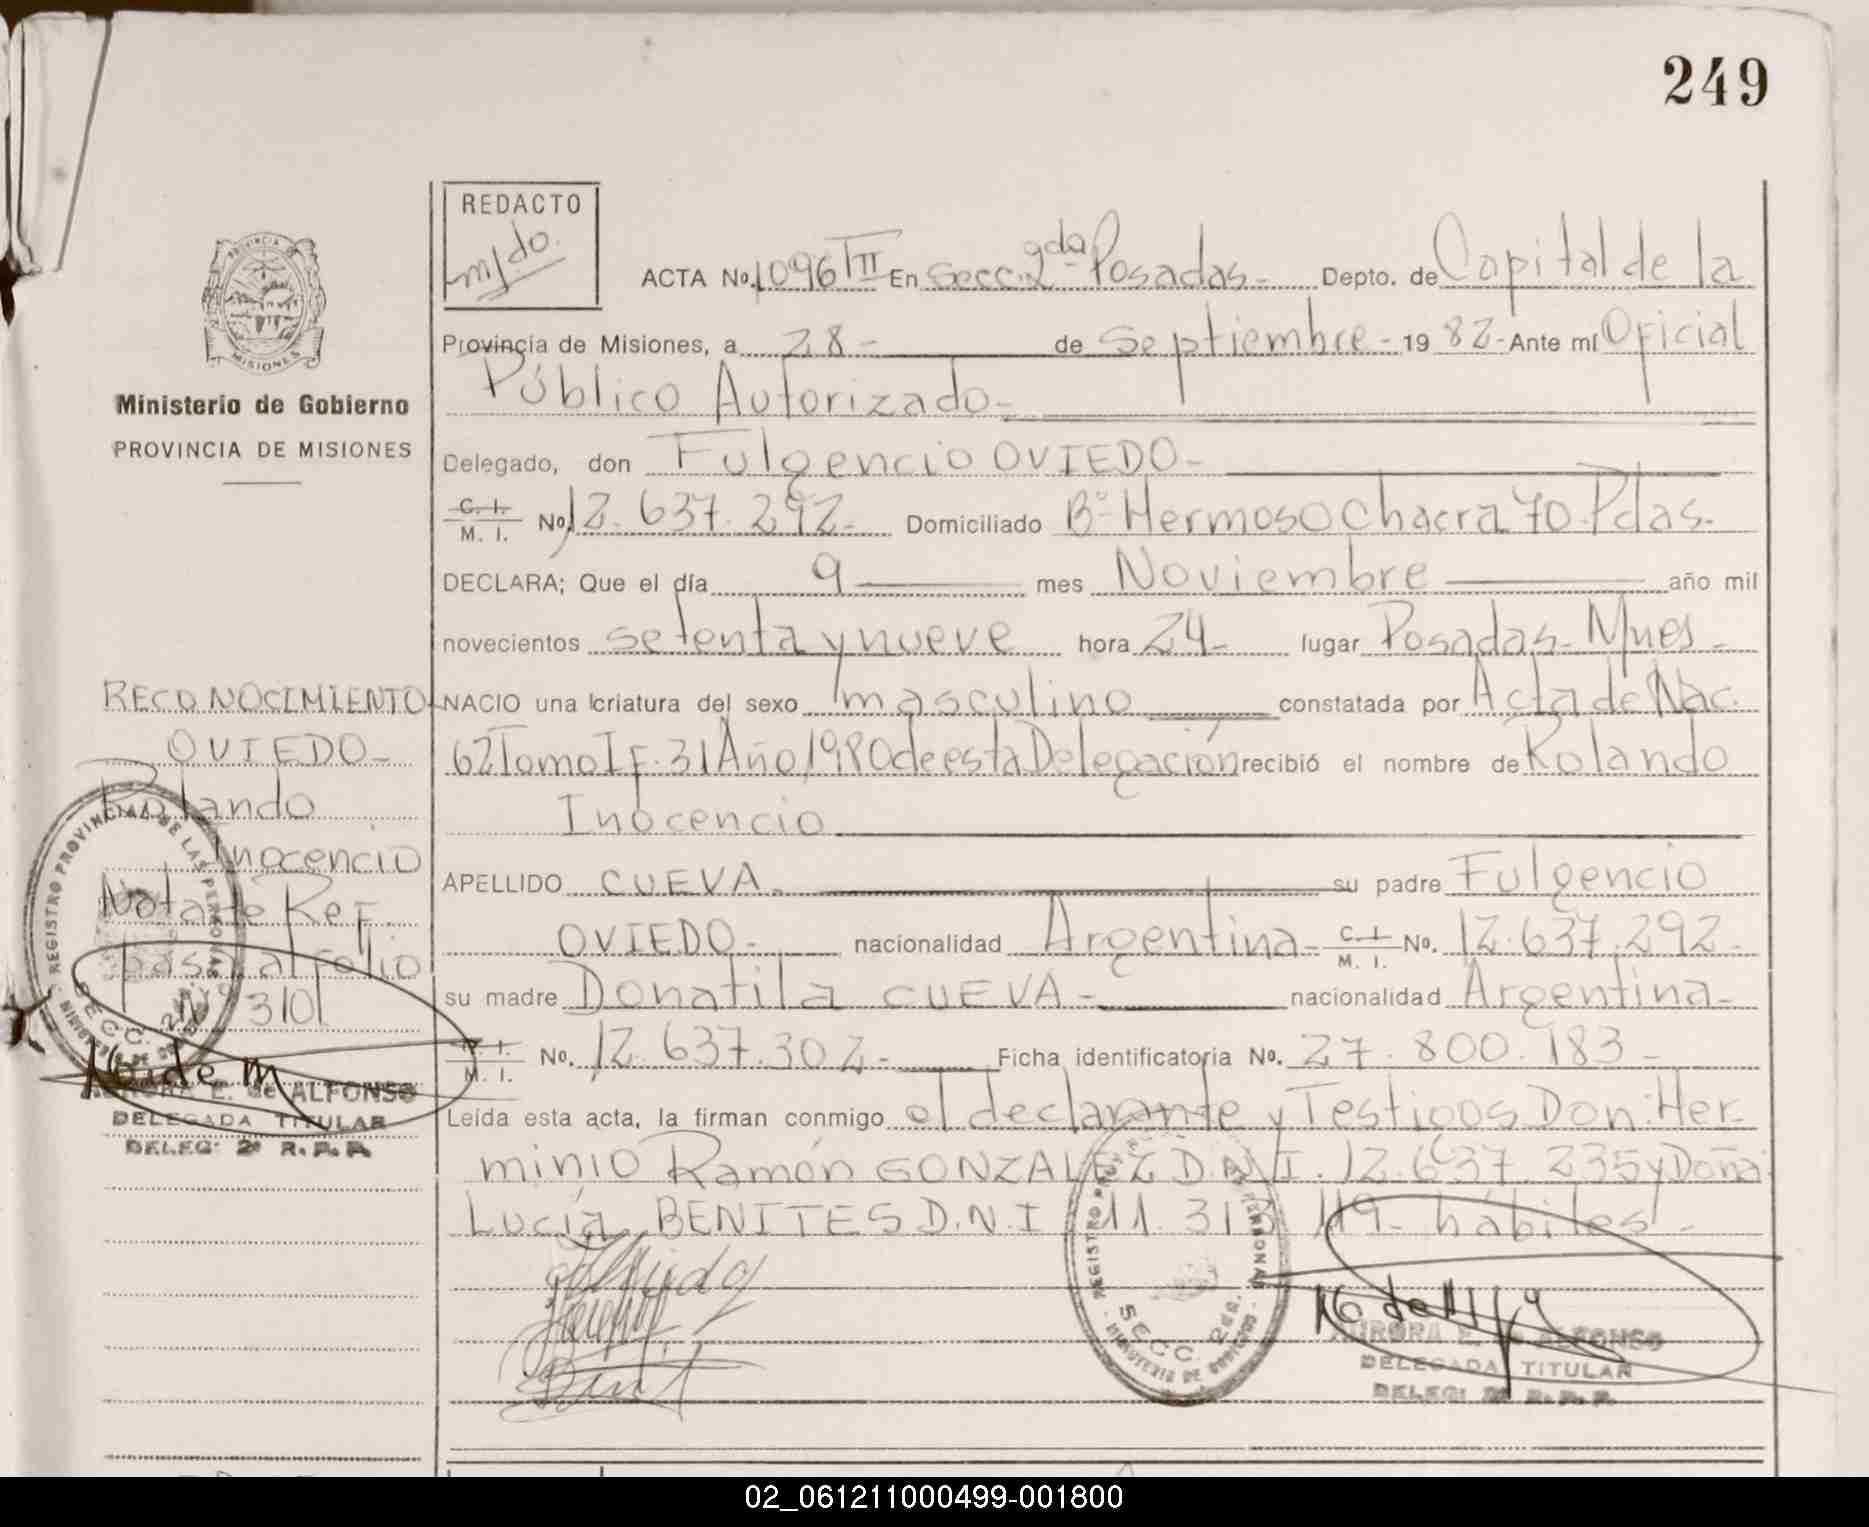 249
REDACTO
m/do.
ACTA No. 1096 TII En Secc. 2da Posadas- Depto. de Capital de la
PROVINCIA DE
MISIONES
Provincia de Misiones, a 28- de Septiembre- 1982- Ante mí Oficial
Público Autorizado-
Ministerio de Gobierno
PROVINCIA DE MISIONES
Delegado, don Fulgencio OVIEDO-
C. I.
M. I. No. 12.637.292- Domiciliado Bº Hermoso Chacra 70-Pdas.
DECLARA; Que el día 9 mes Noviembre año mil
novecientos setenta y nueve hora 24- lugar Posadas- Mnes-
RECONOCIMIENTO
NACIO una criatura del sexo masculino constatada por Acta de Nac.
OVIEDO-
62 Tomo I F. 31 Año 1980 de esta Delegación recibió el nombre de Rolando
Rolando
Inocencio
Inocencio
APELLIDO CUEVA. su padre Fulgencio
Nota de Ref.
OVIEDO- nacionalidad Argentina- C. I. M. I. No. 12.637.292-
pasa al folio
su madre Donatila CUEVA- nacionalidad Argentina-
310
C. I.
M. I. No. 12.637.302- Ficha identificatoria No. 27.800.183-
AURORA E. de ALFONSO
DELEGADA TITULAR
DELEG: 2ª R. P. P.
Leída esta acta, la firman conmigo el declarante y Testigos Don: Her-
minio Ramón GONZALEZ D.N.I. 12.637.235 y Doña
Lucía BENITES D.N.I 11.313.119- hábiles-
REGISTRO PROVINCIAL DE LAS PERSONAS
SECC. 2da.
MINISTERIO DE GOBIERNO
REGISTRO PROVINCIAL DE LAS PERSONAS
SECC. 2da.
MINISTERIO DE GOBIERNO
AURORA E. de ALFONSO
DELEGADA TITULAR
DELEG: 2ª R. P. P.
02_061211000499-001800